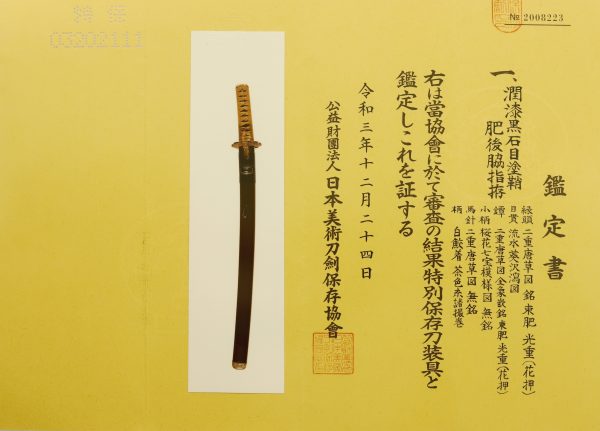 特保
03202111
№ 2008223
鑑定書
一、潤漆黒石目塗鞘
肥後脇指拵
縁頭 二重唐草図 銘 東肥 光重(花押)
目貫 流水葵沢瀉図
鐔 二重唐草図 金象嵌銘 東肥 光重(花押)
小柄 桜花七宝模様図 無銘
馬針 二重唐草図 無銘
柄 白鮫着 茶色糸諸撮巻
右は當協會に於て審査の結果特別保存刀装具と
鑑定しこれを証する
令和三年十二月二十四日
公益財團法人 日本美術刀劍保存協會